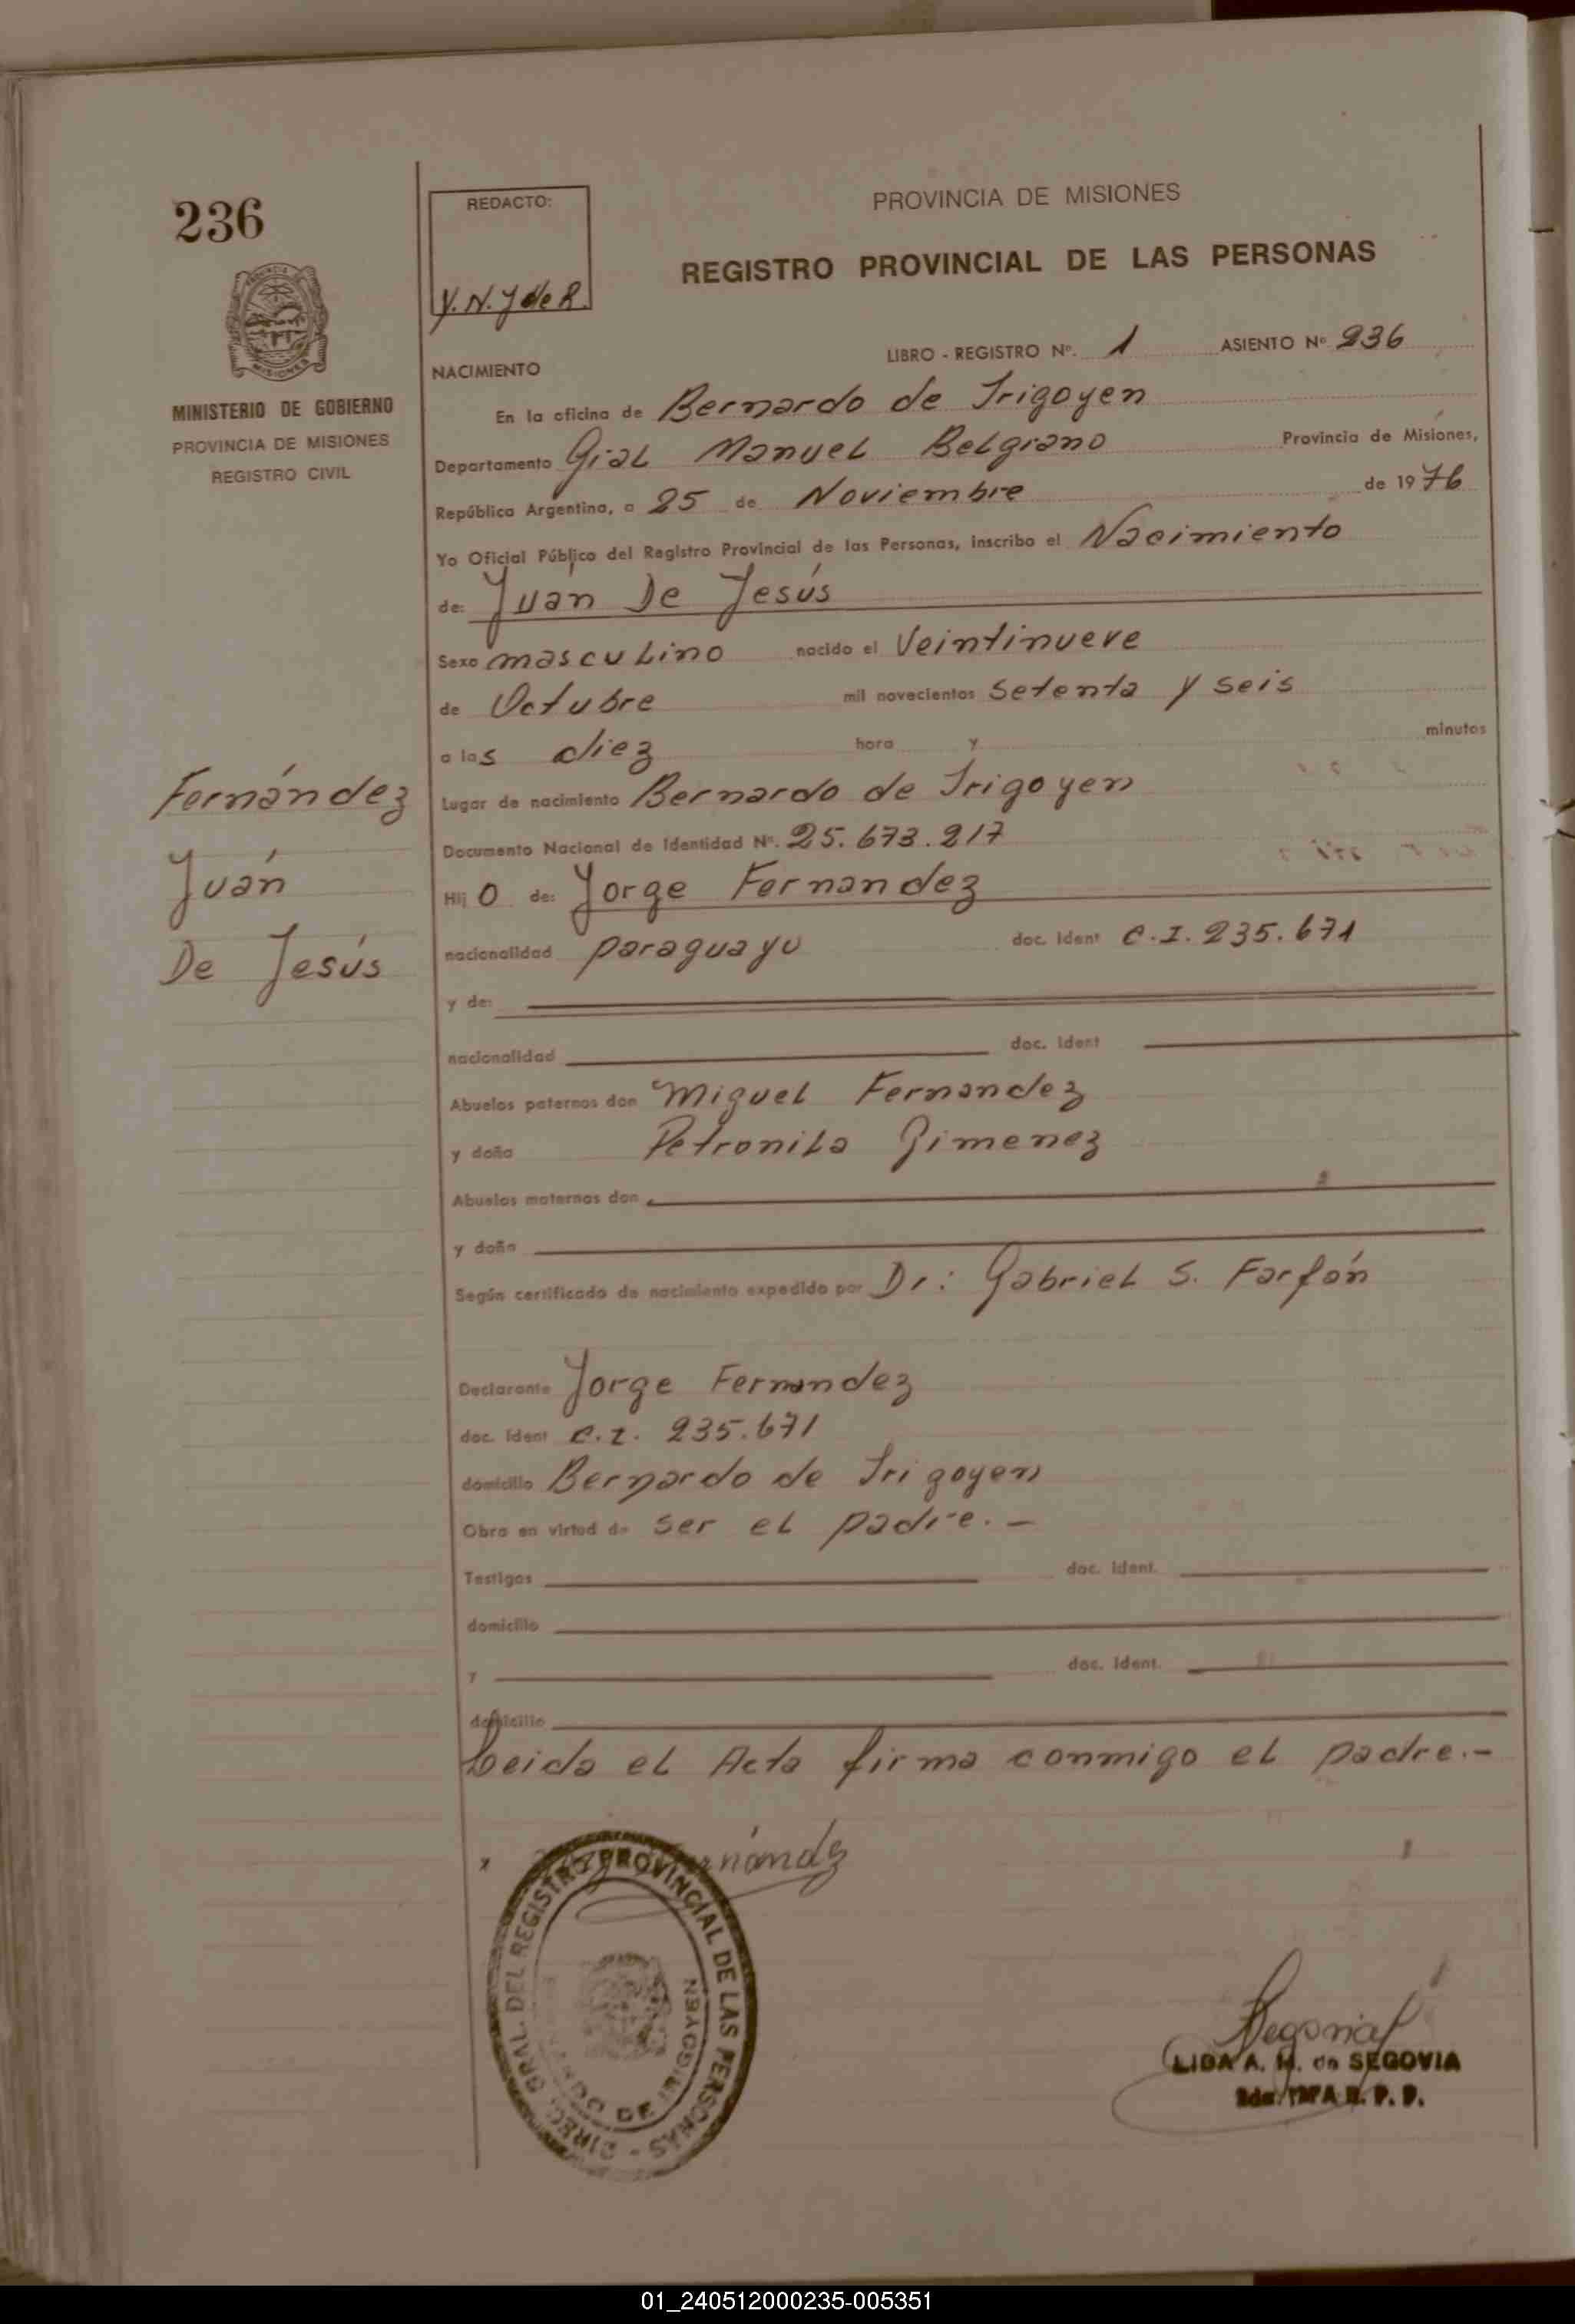 236
PROVINCIA DE MISIONES
MINISTERIO DE GOBIERNO
PROVINCIA DE MISIONES
REGISTRO CIVIL
Fernández
Juán
De Jesús
REDACTO:
Y.N.J de R.
PROVINCIA DE MISIONES
REGISTRO PROVINCIAL DE LAS PERSONAS
LIBRO - REGISTRO Nº. 1 ASIENTO Nº 236
NACIMIENTO
En la oficina de Bernardo de Irigoyen
Departamento Gral Manuel Belgrano Provincia de Misiones,
República Argentina, a 25 de Noviembre de 1976
Yo Oficial Público del Registro Provincial de las Personas, inscribo el Nacimiento
de: Juán De Jesús
Sexo masculino nacido el Veintinueve
de Octubre mil novecientos setenta y seis
a las diez hora y minutos
Lugar de nacimiento Bernardo de Irigoyen
Documento Nacional de Identidad Nº. 25.673.217
Hij o de: Jorge Fernandez
nacionalidad paraguayo doc. Ident C.I. 235.671
y de:
nacionalidad doc. Ident
Abuelos paternos don Miguel Fernandez
y doña Petronila Gimenez
Abuelos maternos don
y doña
Según certificado de nacimiento expedido por Dr: Gabriel S. Farfán
Declarante Jorge Fernandez
doc. Ident C.I. 235.671
domicilio Bernardo de Irigoyen
Obra en virtud de ser el padre.-
Testigos doc. Ident.
domicilio
y doc. Ident.
domicilio
Leida el Acta firma conmigo el padre.-
x
DIREC. GRAL. DEL REGISTRO PROVINCIAL DE LAS PERSONAS -
DE IRIGOYEN
Segovia
LIDA A. M. de SEGOVIA
R. P. P.
01_240512000235-005351